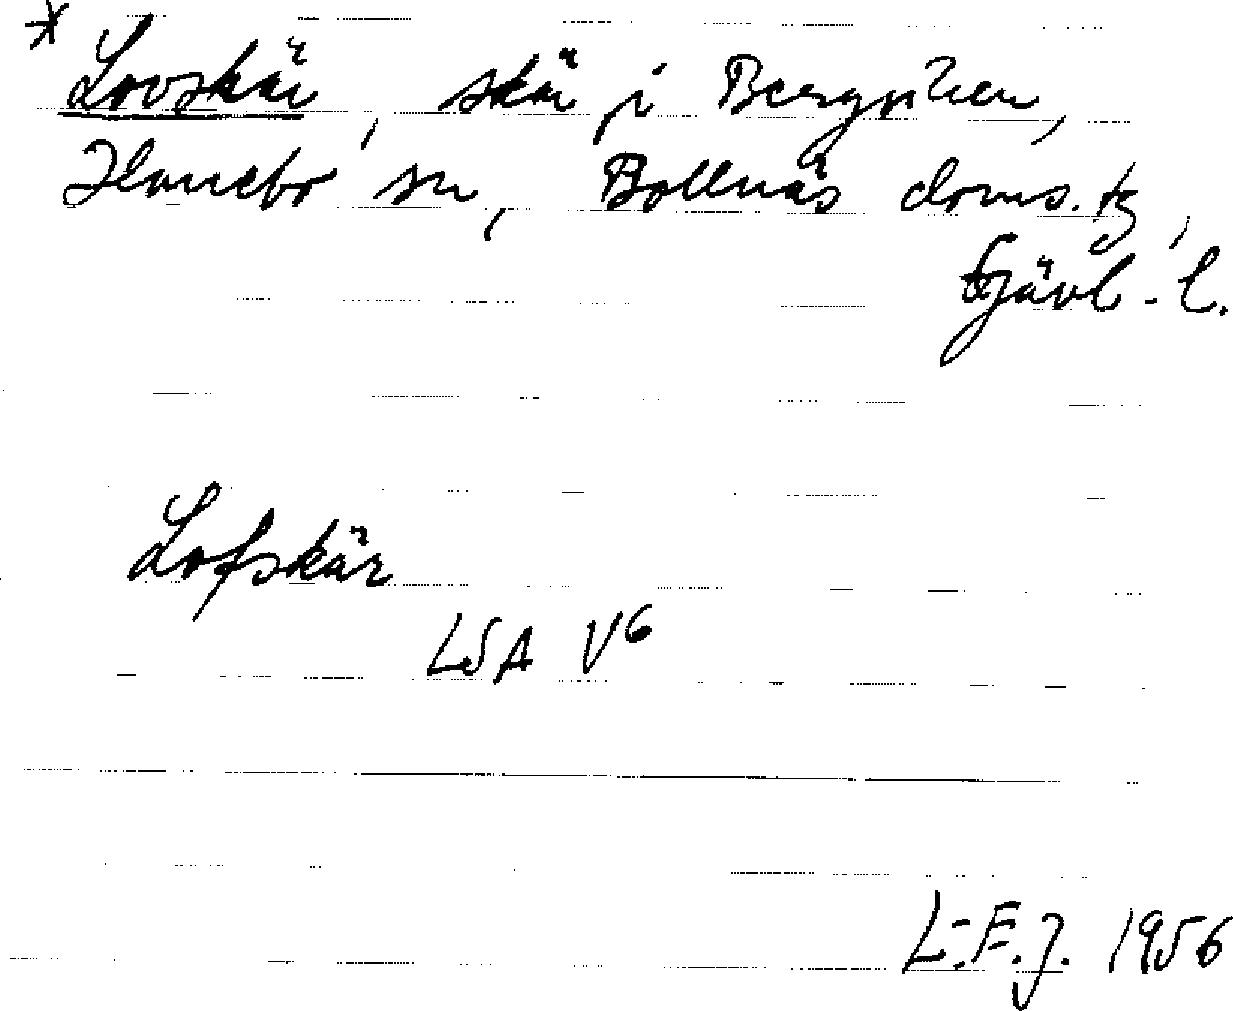 * Lovskär, skär i Bergviken,
Hanebo sn, Bollnäs doms.tg,
Gävl.l.
Lofskär
LSA V6
L.E.J. 1956